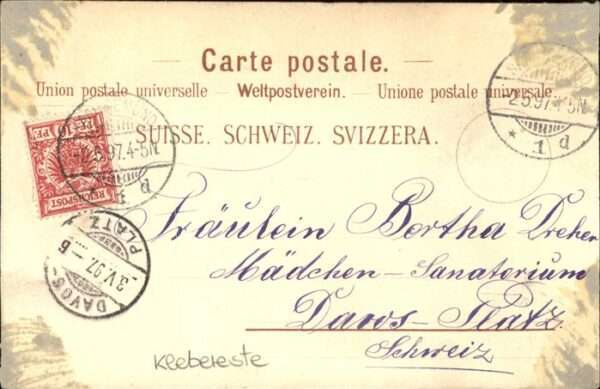 Carte postale.
Union postale universelle — Weltpostverein. — Unione postale universale.
SUISSE. SCHWEIZ. SVIZZERA.
REICHSPOST
2.5.97.4-5N
* 1 d
2.5.97.4-5N
* 1 d
DAVOS-PLATZ
3.V.97.–6
Fräulein Bertha Dreher
Mädchen-Sanatorium
Davos-Platz.
Schweiz
Klebereste